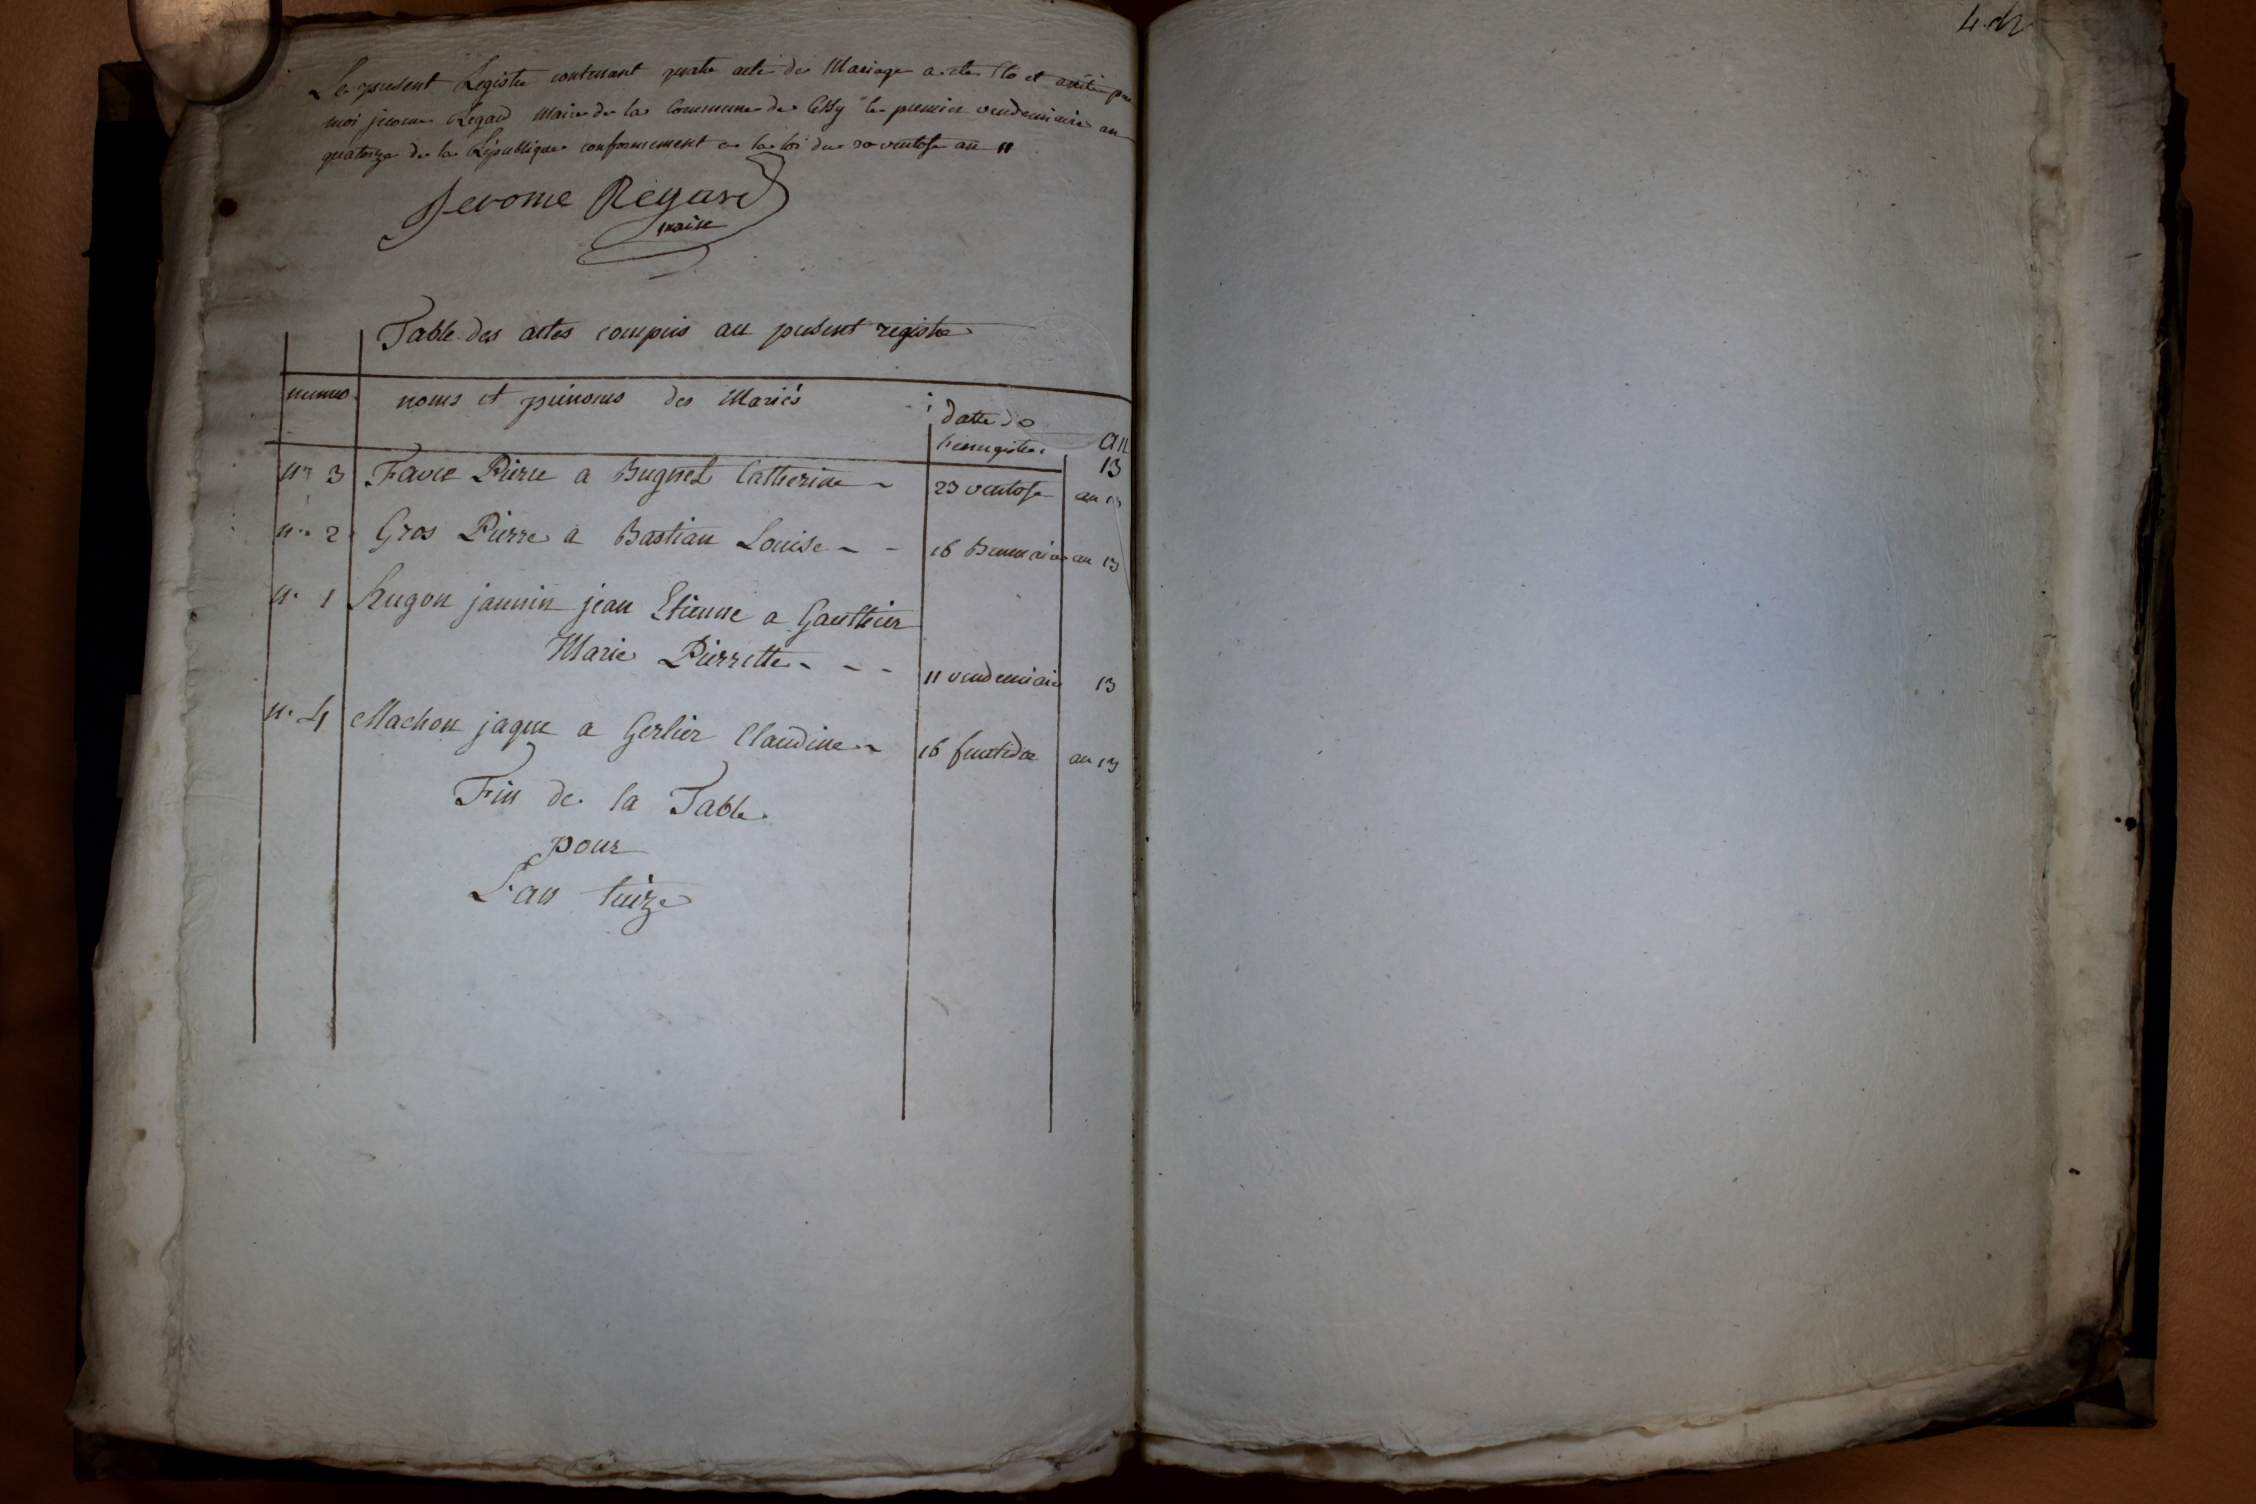 Le present Registre contenant quatre acte de Mariage a ete Clo et arêtée par
moi jerome Regard Maire de la Commune de Cessy le premier vendemiaire an
quatorze de la République conformement a la loi du 20 ventose an 11
Jerome Regard
maire
4
Table des actes compris au present registre
numero noms et prénoms des Mariés date de
l'enregistre: an
13
n° 3 Favre Pierre a Bugnet Catherine 23 ventose an 13
n° 2 Gros Pierre a Bastian Louise - - 16 Brumaire an 13
n° 1 Hugon jannin jean Etienne a Gauthier
Marie Pierrette - - - 11 vendemiair 13
n° 4 Machon jaque a Gerlier Claudine 16 fructidor an 13
Fin de la Table
pour
L'an treize